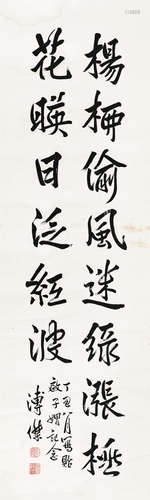 楊桺偷風迷綠漲
花暎日泛紅波
丁酉月寫貽
啟子嫂紀念
溥傑